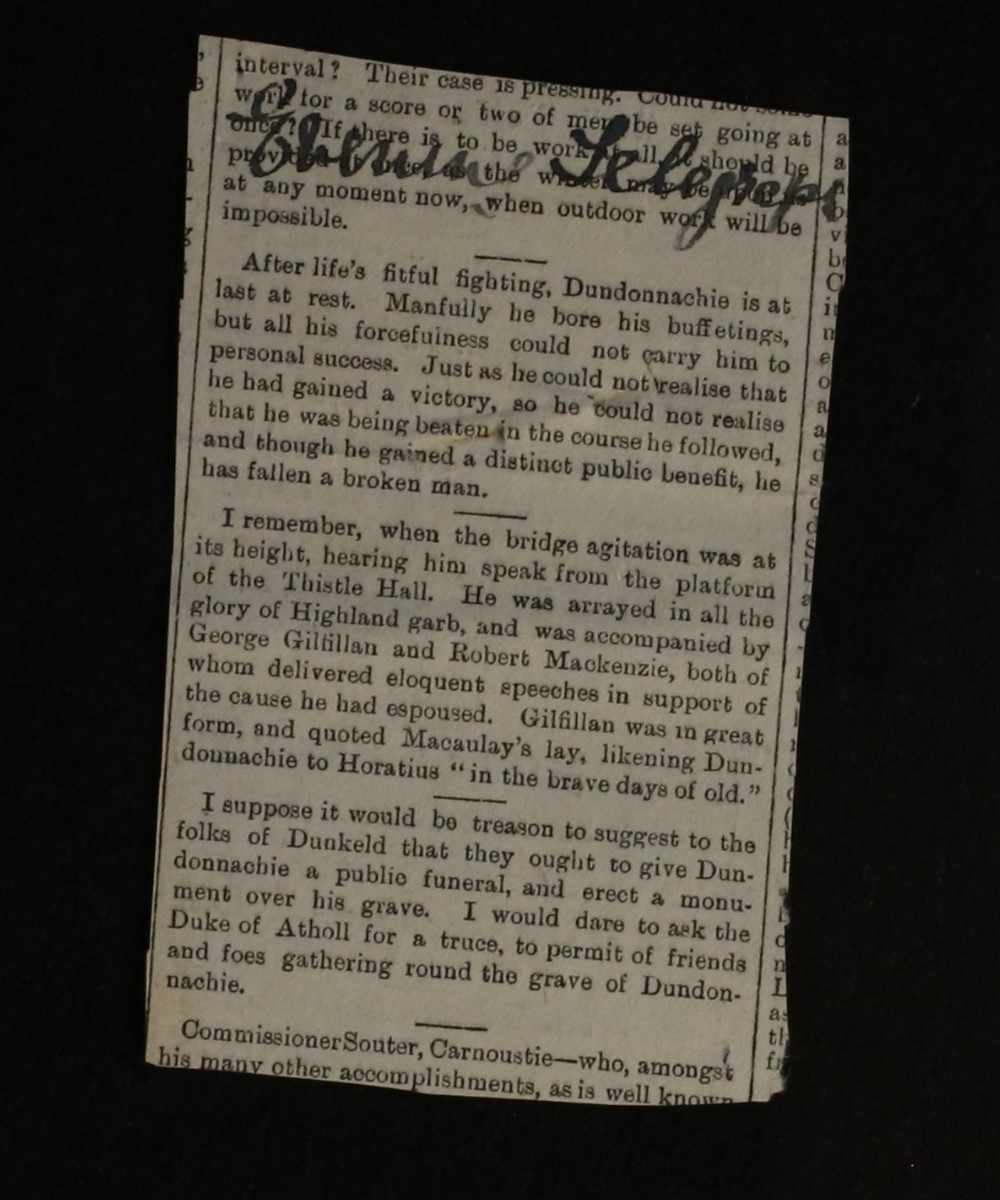 interval? Their case is pressing. Could not some
work for a score or two of men be set going at
once? If there is to be work at all, it should be
provided at once, as the winter may be
at any moment now, when outdoor work will be
impossible.
Evening Telegraph
After life's fitful fighting, Dundonnachie is at
last at rest. Manfully he bore his buffetings,
but all his forcefulness could not carry him to
personal success. Just as he could not realise that
he had gained a victory, so he could not realise
that he was being beaten in the course he followed,
and though he gained a distinct public benefit, he
has fallen a broken man.
I remember, when the bridge agitation was at
its height, hearing him speak from the platform
of the Thistle Hall. He was arrayed in all the
glory of Highland garb, and was accompanied by
George Gilfillan and Robert Mackenzie, both of
whom delivered eloquent speeches in support of
the cause he had espoused. Gilfillan was in great
form, and quoted Macaulay's lay, likening Dun-
donnachie to Horatius "in the brave days of old."
I suppose it would be treason to suggest to the
folks of Dunkeld that they ought to give Dun-
donnachie a public funeral, and erect a monu-
ment over his grave. I would dare to ask the
Duke of Atholl for a truce, to permit of friends
and foes gathering round the grave of Dundon-
nachie.
Commissioner Souter, Carnoustie—who, amongst
his many other accomplishments, as is well known